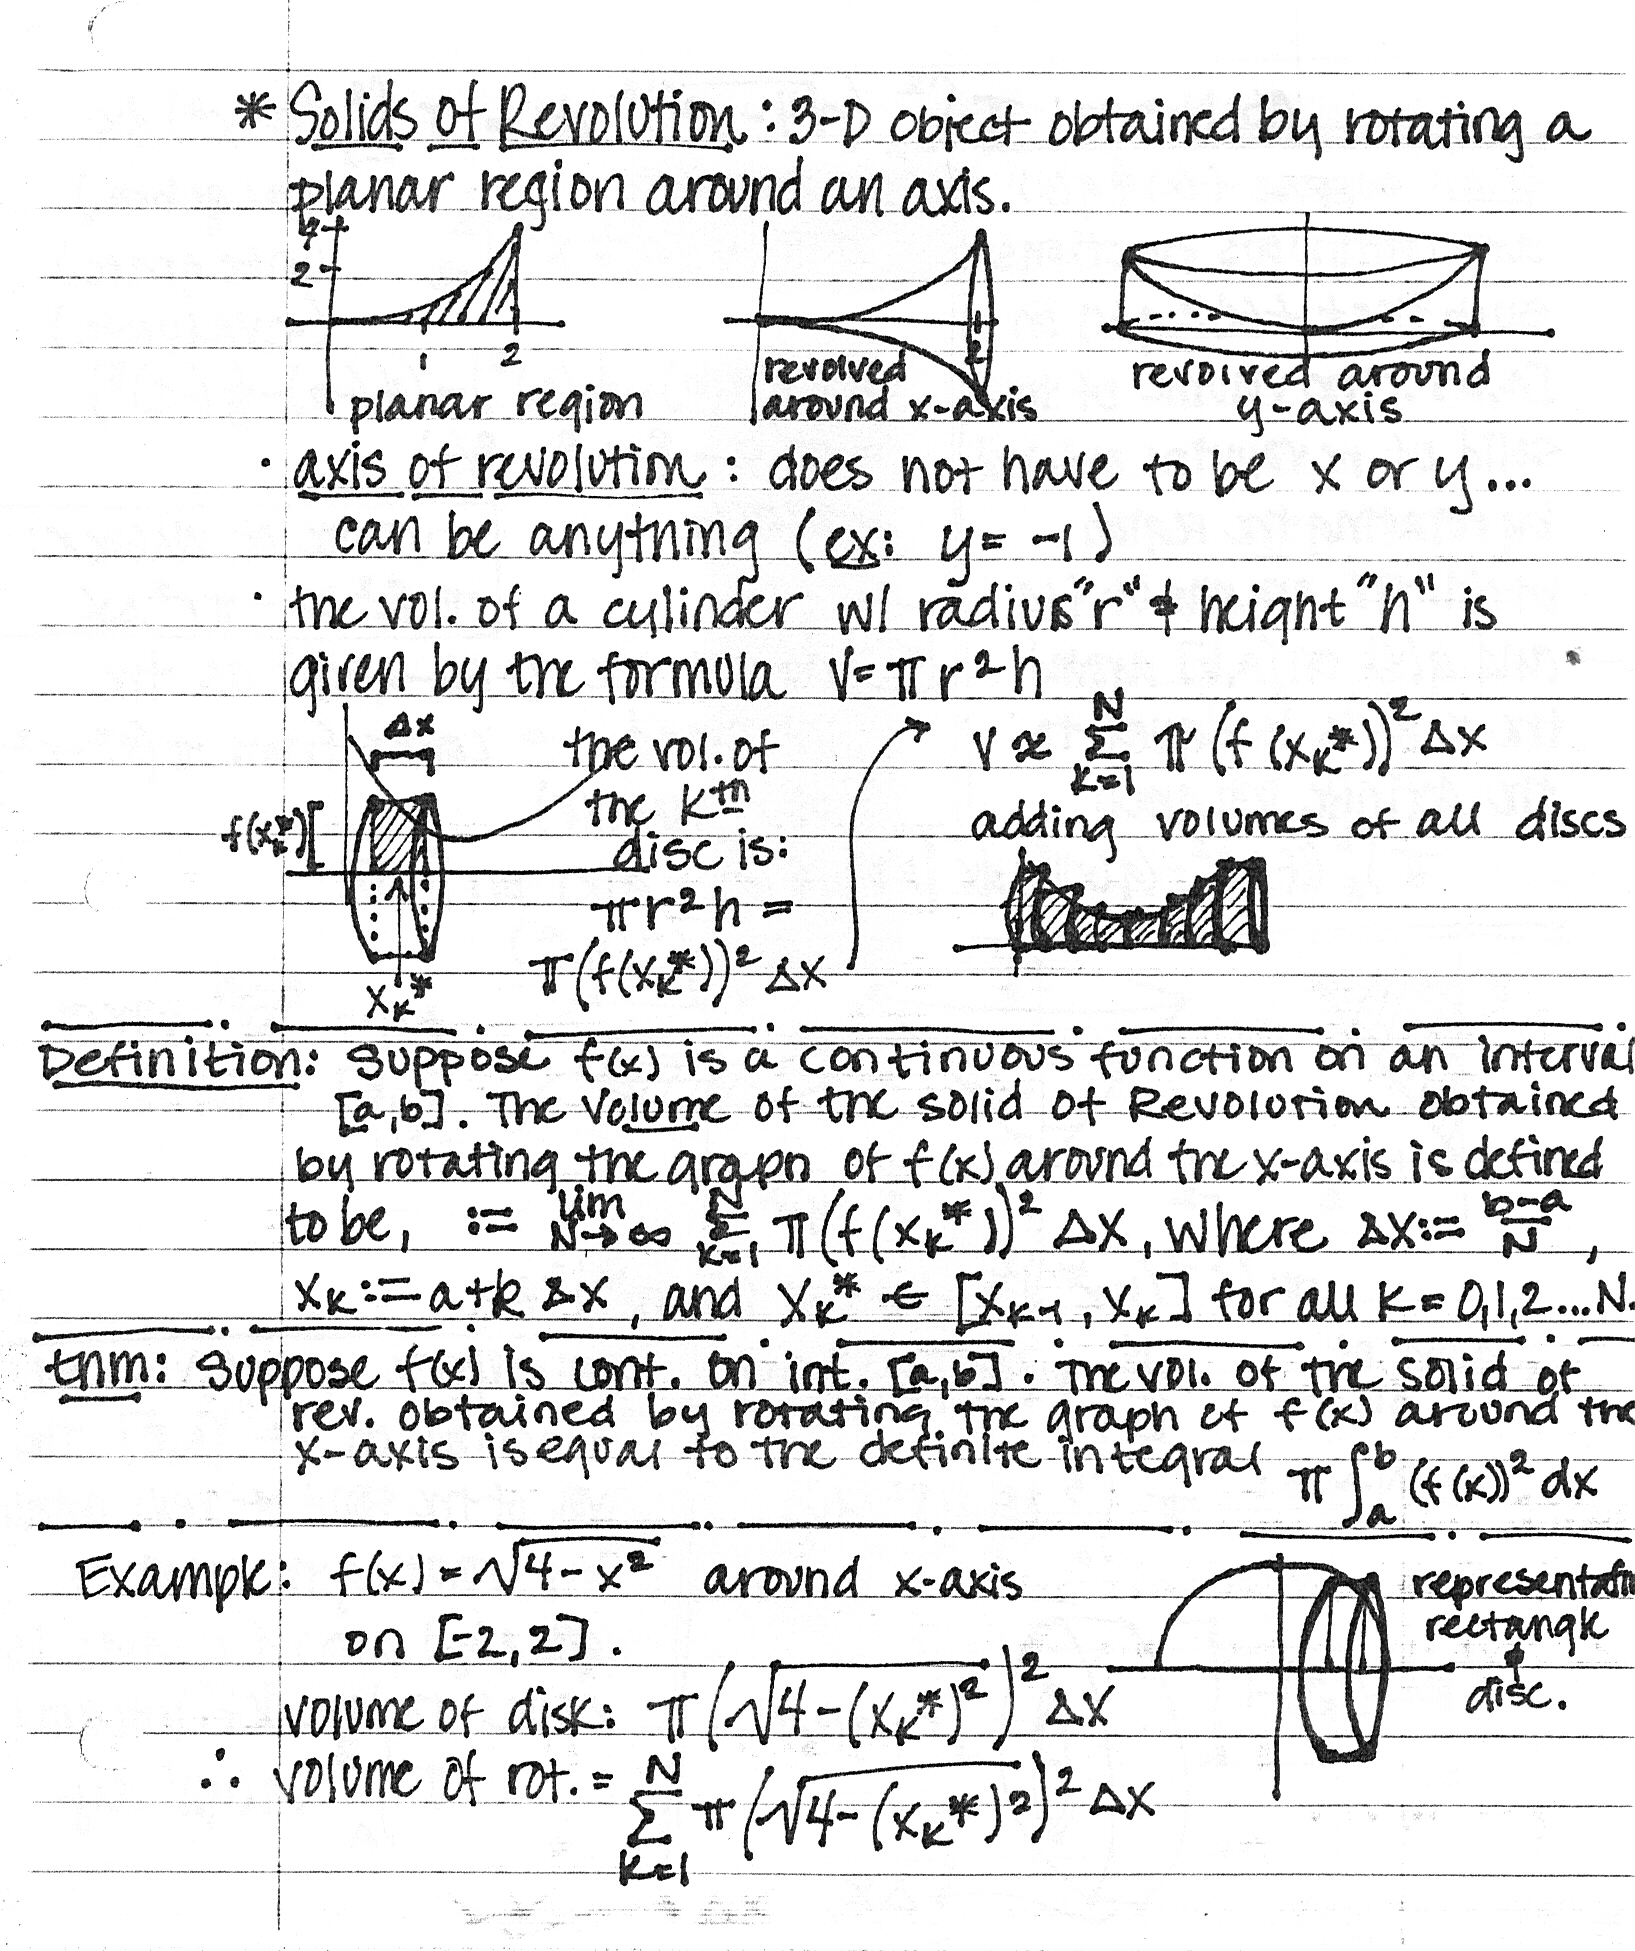 * Solids of Revolution: 3-D object obtained by rotating a
planar region around an axis.
4
2
1 2
planar region
2
revolved
around x-axis
revolved around
y-axis
· axis of revolution: does not have to be x or y...
can be anything (ex: y= -1)
· the vol. of a cylinder w/ radius "r" & height "h" is
given by the formula V=πr²h
Δx
f(xₖ*)[
xₖ*
the vol. of
the kth
disc is:
πr²h =
π(f(xₖ*))² Δx
V ≈ N Σ k=1 π (f(xₖ*))² Δx
adding volumes of all discs
Definition: Suppose f(x) is a continuous function on an interval
[a,b]. The Volume of the solid of Revolution obtained
by rotating the graph of f(x) around the x-axis is defined
to be, := lim N→∞ N Σ k=1 π(f(xₖ*))² Δx, where Δx:= b-a/N,
xₖ:=a+k Δx, and xₖ* ∈ [xₖ₋₁, xₖ] for all k = 0,1,2...N.
thm: Suppose f(x) is cont. on int. [a,b]. The vol. of the solid of
rev. obtained by rotating the graph of f(x) around the
x-axis is equal to the definite integral π∫ₐᵇ (f(x))² dx
Example: f(x) = √4-x² around x-axis
on [-2,2].
representati
rectangle
disc.
volume of disk: π(√4-(xₖ*)²)² Δx
∴ volume of rot. = N Σ k=1 π(√4-(xₖ*)²)² Δx